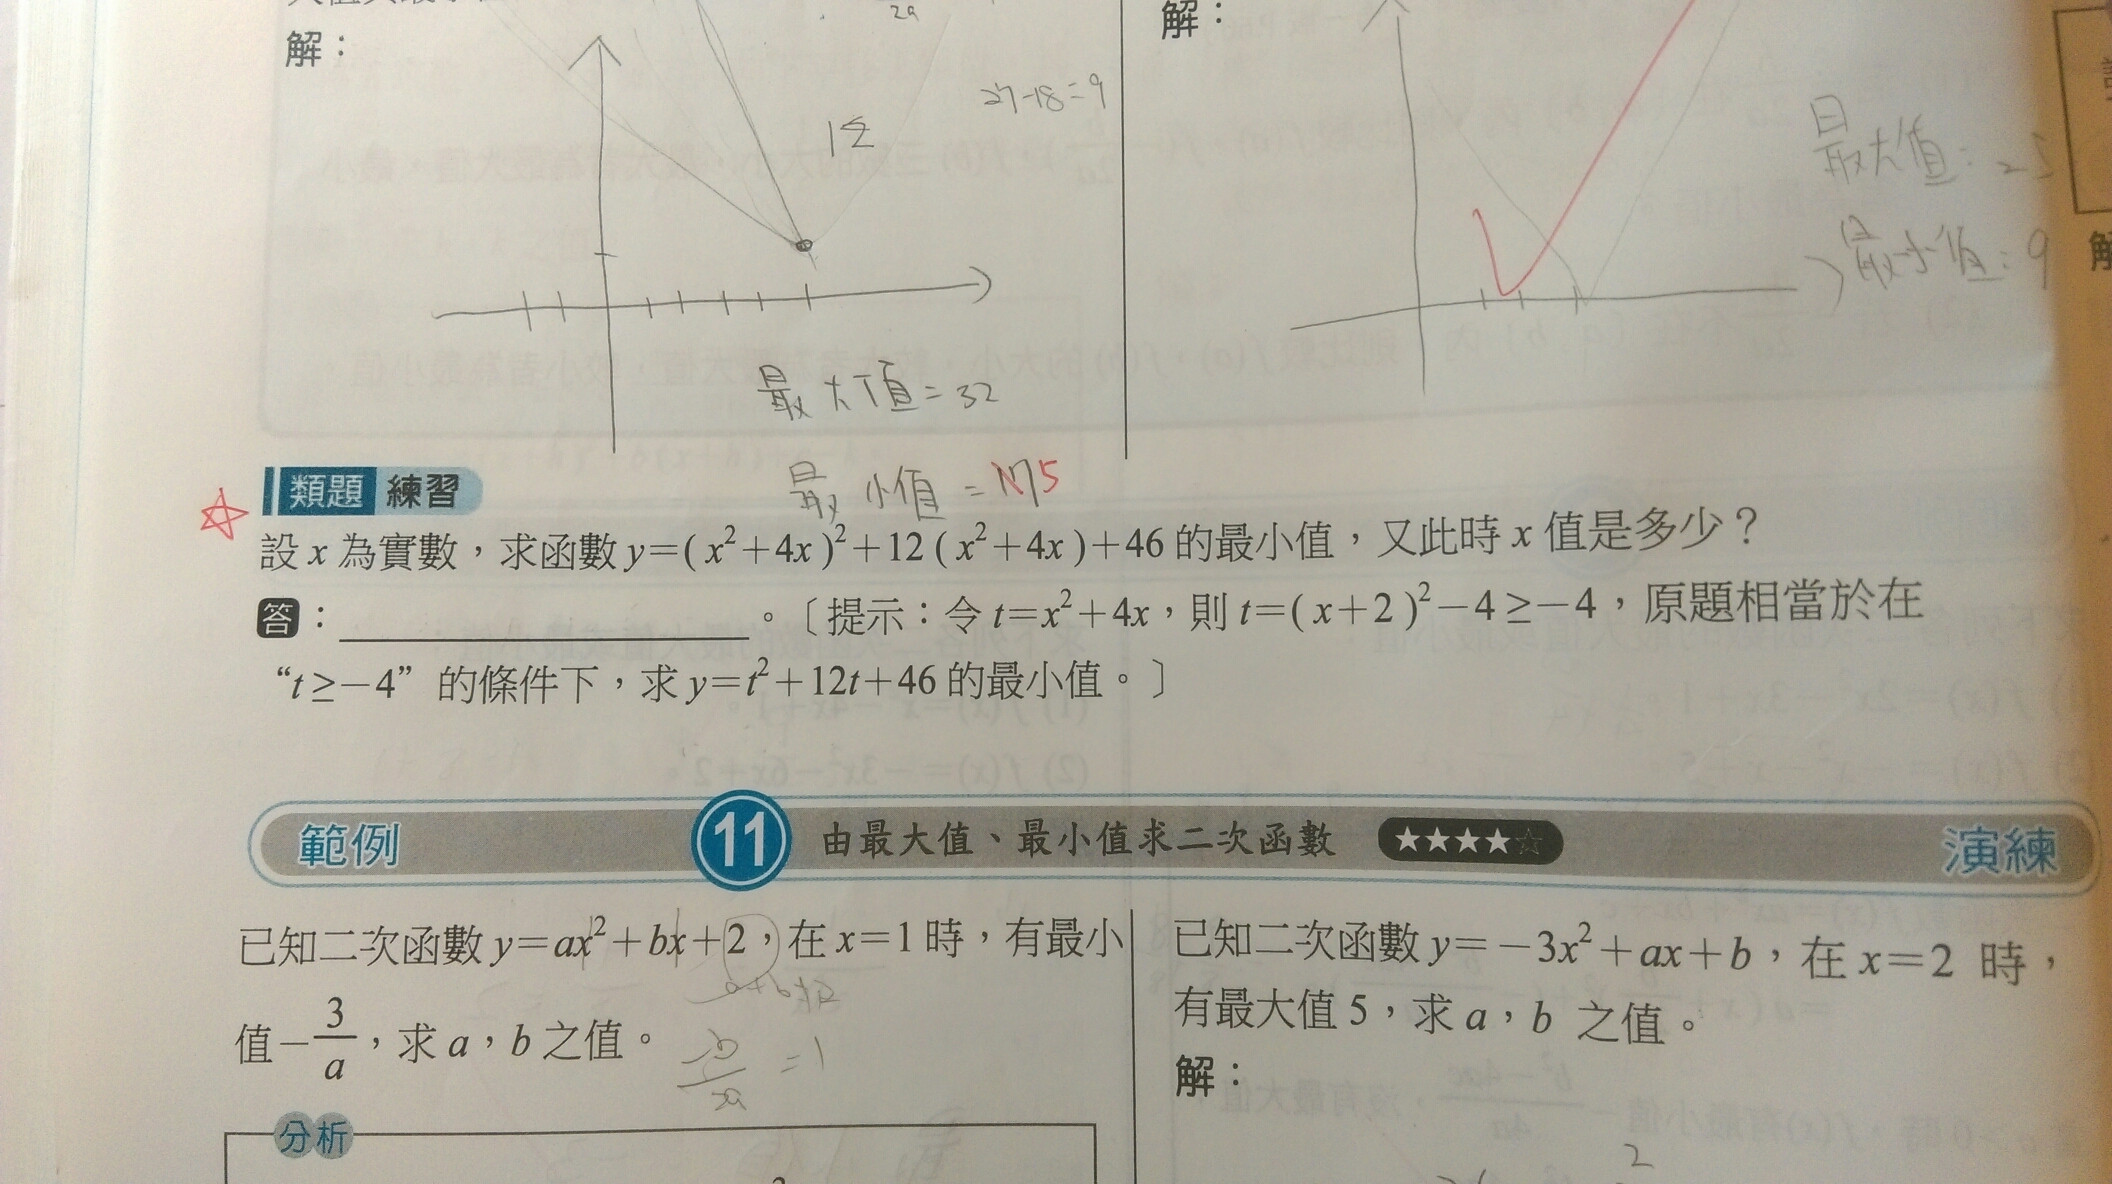 解：
2a
解：
27-18=9
最大值：25
最小值：9
最大值=32
最小值=175
類題 練習
設 x 為實數，求函數 y=(x²+4x)²+12(x²+4x)+46 的最小值，又此時 x 值是多少？
答：＿＿＿＿＿＿＿＿。〔提示：令 t=x²+4x，則 t=(x+2)²-4≥-4，原題相當於在
“t≥-4”的條件下，求 y=t²+12t+46 的最小值。〕
範例 11 由最大值、最小值求二次函數 ★★★★☆ 演練
已知二次函數 y=ax²+bx+2，在 x=1 時，有最小
值-3/a，求 a，b 之值。
-b/2a=1
分析
已知二次函數 y=-3x²+ax+b，在 x=2 時，
有最大值 5，求 a，b 之值。
解：